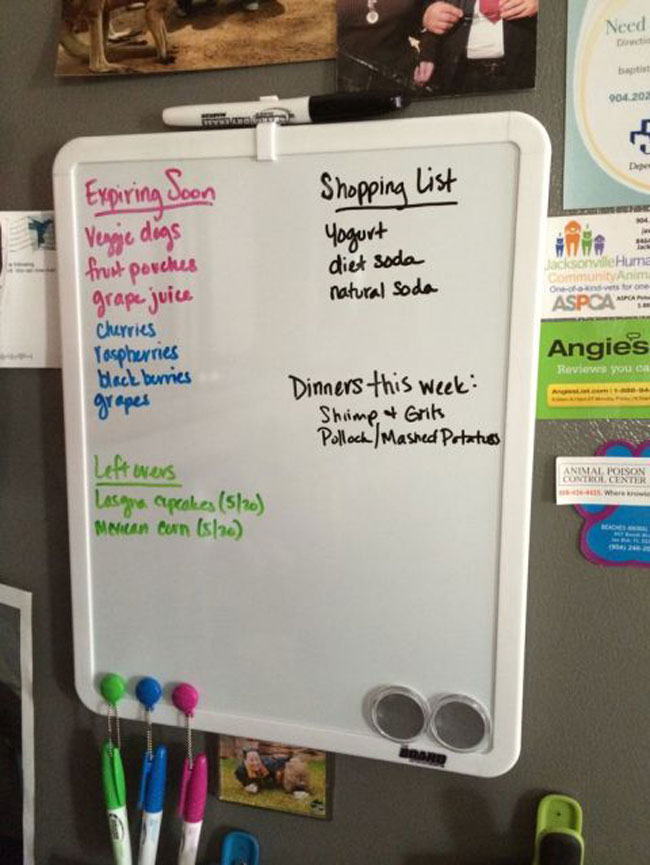 Expiring Soon
Veggie dogs
fruit pouches
grape juice
Cherries
raspberries
black berries
grapes
Left overs
Lasgna cupcakes (5/20)
Mexican Corn (5/20)
Shopping List
Yogurt
diet soda
natural soda
Dinners this week:
Shrimp & Grits
Pollock/Mashed Potatoes
BOARD
Need
Directio
baptist
904.202
Depe
Jacksonville Huma
Community Anima
One-of-a-kind-vets for one
ASPCA
Angie's
Reviews you ca
AngiesList.com
ANIMAL POISON
CONTROL CENTER
Where knowle
BEACHES ANIMAL
(904) 246-20